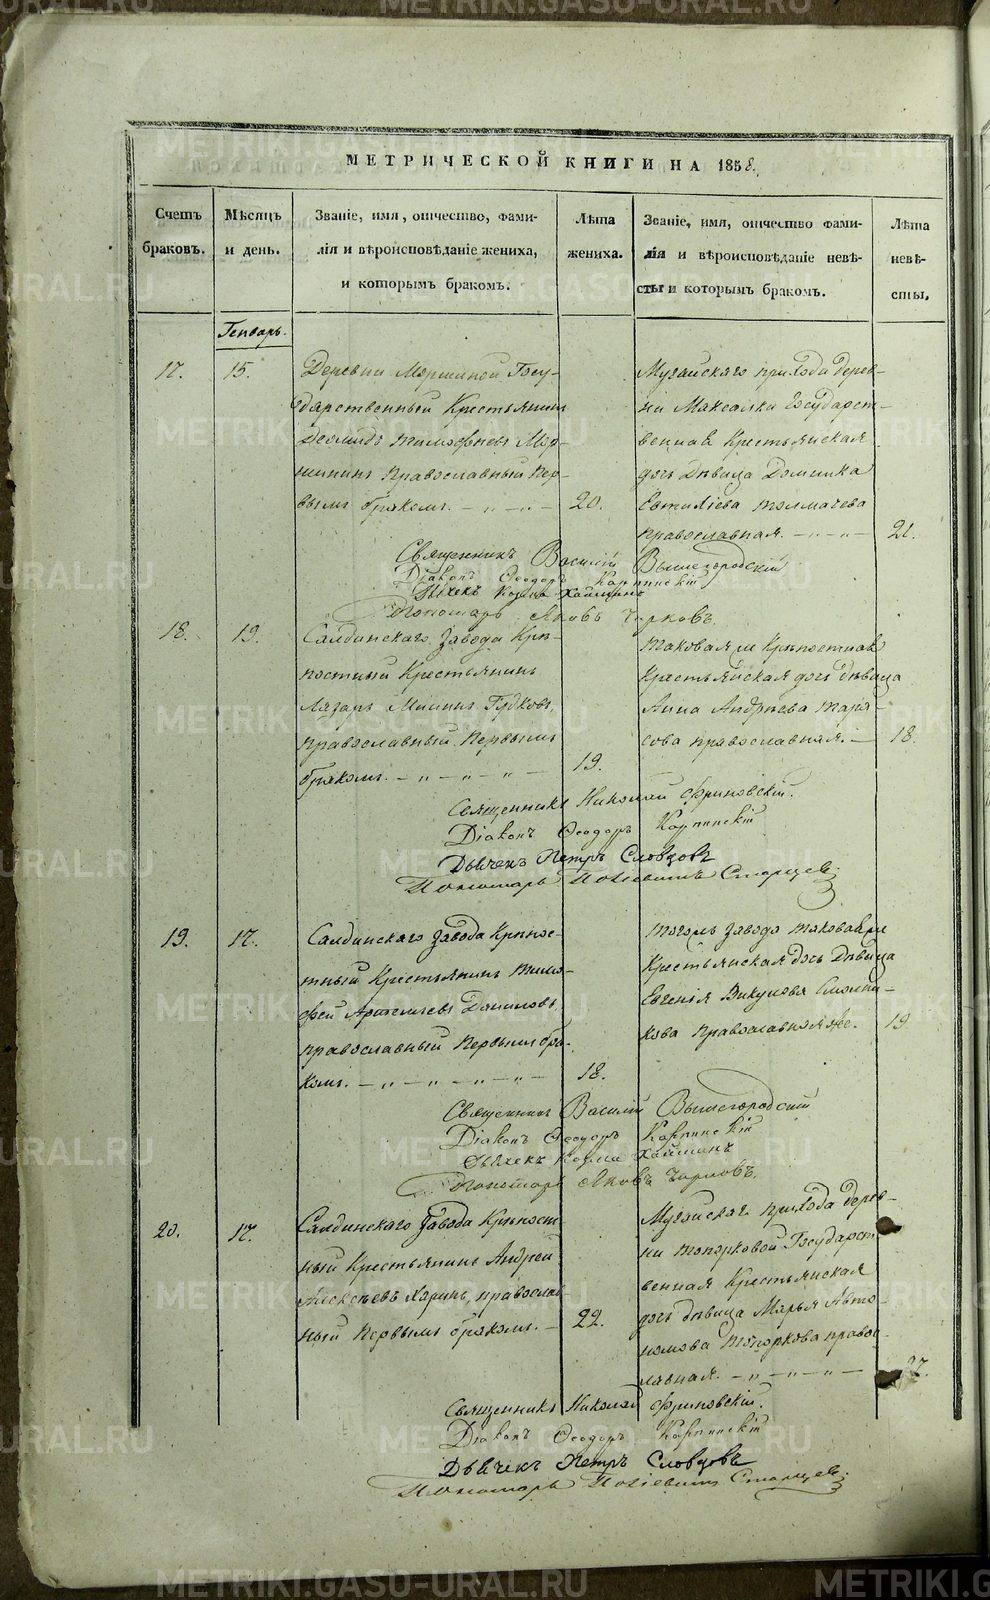 МЕТРИЧЕСКОЙ КНИГИ НА 1858.
Счетъ браковъ.
Мѣсяцъ и день.
Званіе, имя, отчество, фами-
лія и вѣроисповѣданіе жениха,
и которымъ бракомъ.
Лѣта жениха.
Званіе, имя, отчество фами-
лія и вѣроисповѣданіе невѣ-
сты и которымъ бракомъ.
Лѣта невѣ-
сты.
Генварь.
17.
15.
Деревни Моршиной Госу-
дарственный Крестьянинъ
Тимофѣевъ Мор-
шининъ Православный пер-
вымъ бракомъ.
20.
Мугайскаго прихода дерев-
ни Максалка Государст-
венная Крестьянская
дочь дѣвица Домника
Толмачева
православная.
21.
Священникъ Василій Вышегородскій
Діаконъ Ѳеодоръ Карпинскій
Дьячекъ Козма Хайминъ
Пономарь Яковъ Чирковъ.
18.
19.
Салдинскаго завода Крѣ-
постный Крестьянинъ
Лазарь Мининъ Гудковъ,
православный, первымъ
бракомъ.
19.
Таковая же Крѣпостная
Крестьянская дочь дѣвица
Анна Андреева Тара-
сова православная.
18.
Священникъ Николай Фриновскій.
Діаконъ Ѳеодоръ Карпинскій
Дьячекъ Петръ Словцовъ
Пономарь Старцевъ
19.
17.
Салдинскаго завода Крѣпос-
тный Крестьянинъ Тимо-
фей Артемьевъ Даниловъ,
православный первымъ бра-
комъ.
18.
Тогожъ завода таковая же
Крестьянская дочь дѣвица
Евгенія Викулова
православная же.
19
Священникъ Василій Вышегородскій
Діаконъ Ѳеодоръ Карпинскій
Дьячекъ Козма Хайминъ
Пономарь Яковъ Чирковъ.
20.
17.
Салдинскаго завода Крѣпост
ный Крестьянинъ Андрей
Алексѣевъ Харинъ, православ
ный первымъ бракомъ.
22.
Мугайскаго прихода дерев-
ни Топорковой Государст
венная Крестьянская
дочь дѣвица Марья Авто-
номова Топоркова правос-
лавная.
Священникъ Николай Фриновскій.
Діаконъ Ѳеодоръ Карпинскій
Дьячекъ Петръ Словцовъ
Пономарь Старцевъ
METRIKI.GASO-URAL.RU